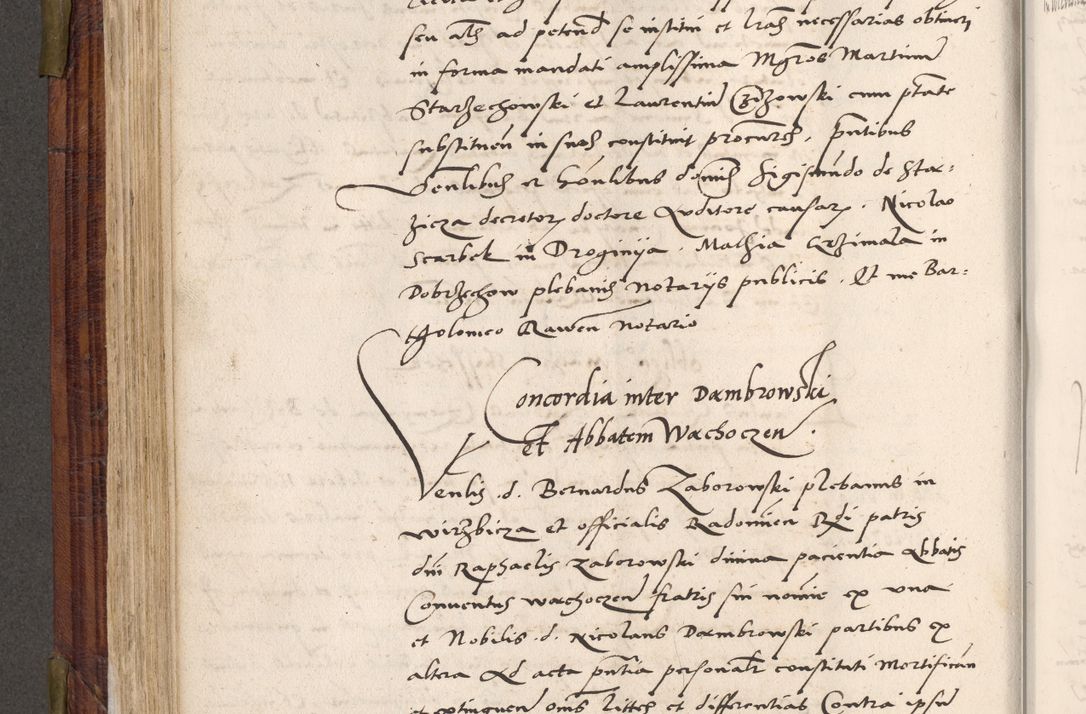 seu alias ad petend se institui et lras necessarias obtineri
in forma mandati amplissima Mgros Martinu
Starzechowski et Laurentiu Czyzowski cum ptate
substituen in suos constituit procures. pntibus
Venlibus et Honlibus dominis Sigismundo de Star=
zicza decretor doctore Auditore causar. Nicolao
Scarbek in Droginija. Mathia Crzimala in
Dobrzechow plebanis Notarijs publicis. Et me Bar=
tholomeo Rawen Notario
Concordia inter Dambrowski
et Abbatem Wachoczen.
Venlis. d. Bernardus Zaborowski plebanus in
Wirzbicza et officialis Radomien Rdi patris
dni Raphaelis Zaborowski diuina pacientia Abbatis
Conuentus Wachoczen fratris sui nomine ex vna
et Nobilis. d. Nicolaus Dambrowski partibus ex
altera Ad acta pntia personalr constituti Mortifican
et extinguen omes lites et differentias Contra ipsu